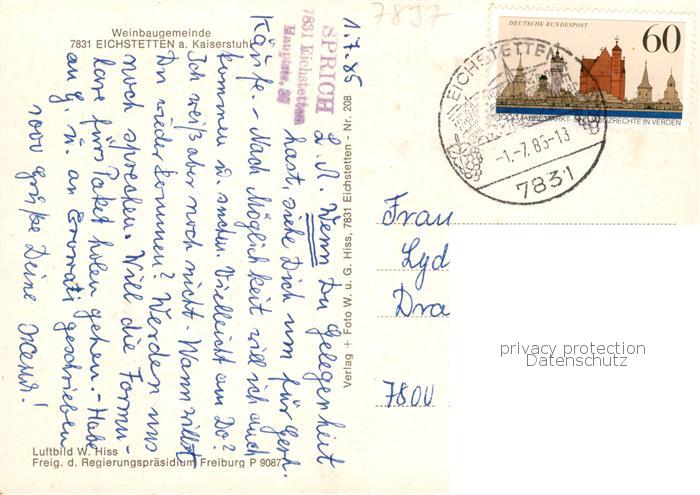 Weinbaugemeinde
7831 EICHSTETTEN a. Kaiserstuhl
7837
1.7.85
SPRICH
7831 Eichstetten
Hauptstr.
L. N. Wenn Du Gelegenheit
hast, siehe Dich um für Gerh.
Käufe. - Nach Möglichkeit will ich auch
kommen u. suchen. Vielleicht am Do?
Ich weiß aber noch nicht. Wann willst
Du wieder kommen? Werden uns
noch sprechen. Will die Formu-
lare fürs Paket holen gehen. - Habe
an G. u. an geschrieben
1000 Grüße Deine Женя!
Verlag + Foto W. u. G. Hiss, 7831 Eichstetten - Nr. 208
Luftbild W. Hiss
Freig. d. Regierungspräsidium Freiburg P 9087
DEUTSCHE BUNDESPOST
60
1000 JAHRE MARKT- MÜNZRECHTE IN VERDEN
EICHSTETTEN
-1.-7.85-13
7831
Frau
Lyd
Dra
7800
privacy protection
Datenschutz